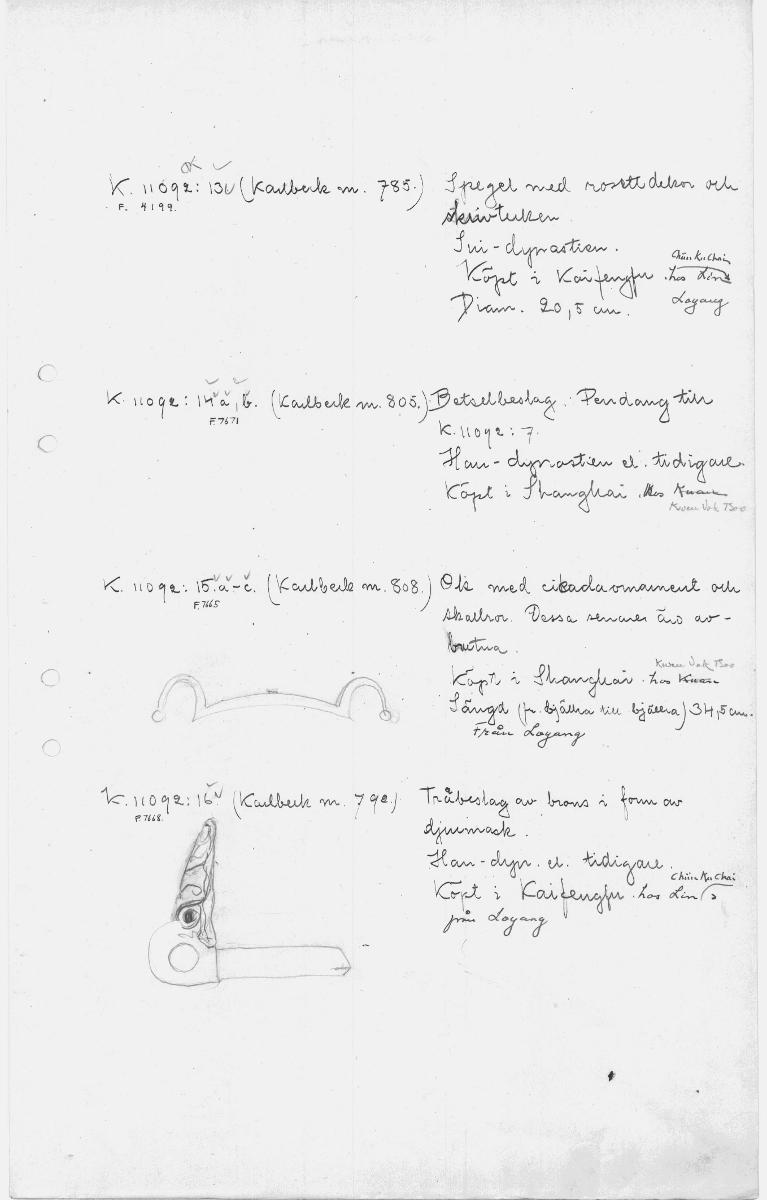 OK
K. 11092: 13 (Karlbeck m. 785.) Spegel med rosettdekor och
F. 4199.
skrivtecken.
Sui-dynastien.
Chün Ku Chai
Köpt i Kaifengfu. hos Lin
Diam. 20,5 cm. Loyang
K. 11092: 14 a, b. (Karlbeck m. 805.) Betselbeslag. Pendang till
F. 7671
K. 11092: 7.
Han-dynastien el. tidigare.
Köpt i Shanghai. hos Kwan
Kwen Vok Tsoo
K. 11092: 15. a-c. (Karlbeck m. 808.) Ok med cikadaornament och
F. 7665
skallror. Dessa senare äro av-
brutna.
Kwen Vok Tsoo
Köpt i Shanghai. hos Kwan
Längd (fr. bjällra till bjällra) 34,5 cm.
Från Loyang
K. 11092: 16 (Karlbeck m. 792.) Träbeslag av brons i form av
F. 7668.
djurmask.
Han-dyn. el. tidigare.
Chün Ku Chai
Köpt i Kaifengfu. hos Lin
från Loyang